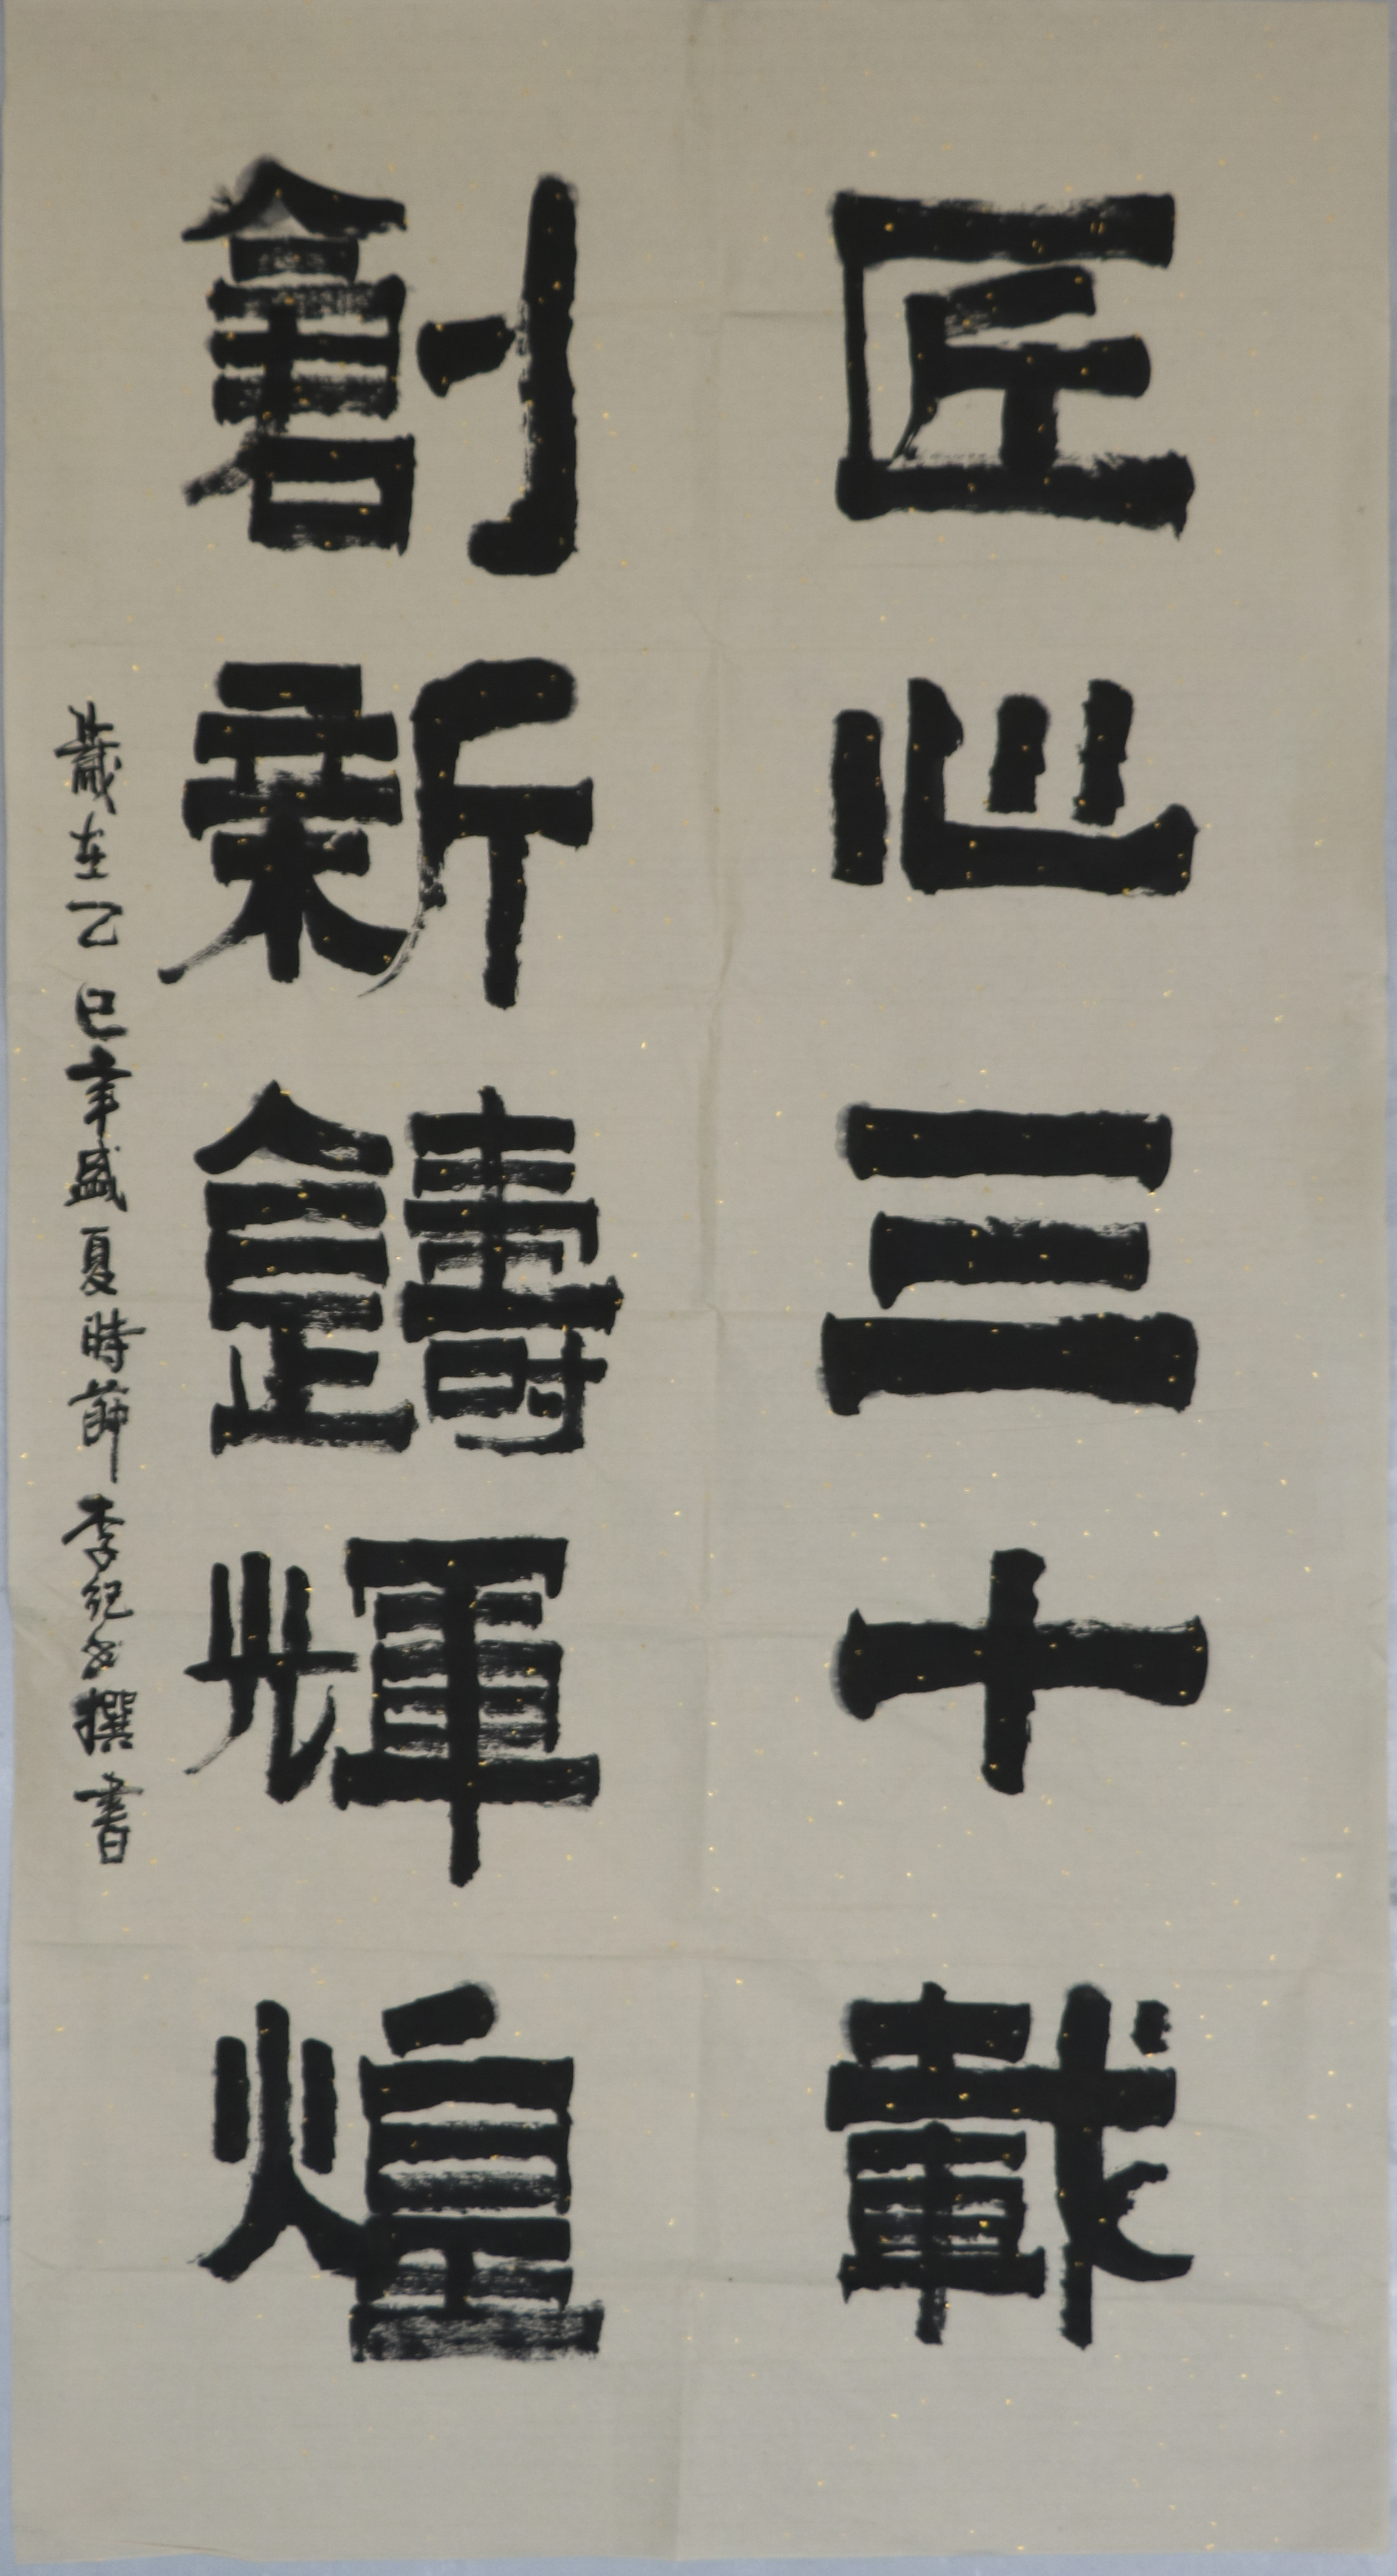 匠心三十載
創新鑄輝煌
歲在乙巳年盛夏時節李纪書撰書